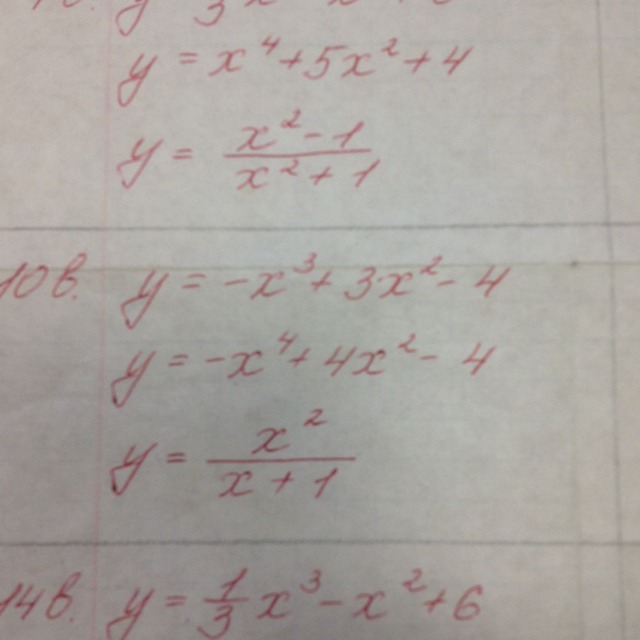 y = x⁴ + 5x² + 4
y = (x² - 1)/(x² + 1)
10 в. y = -x³ + 3x² - 4
y = -x⁴ + 4x² - 4
y = x²/(x + 1)
14 в. y = 1/3 x³ - x² + 6